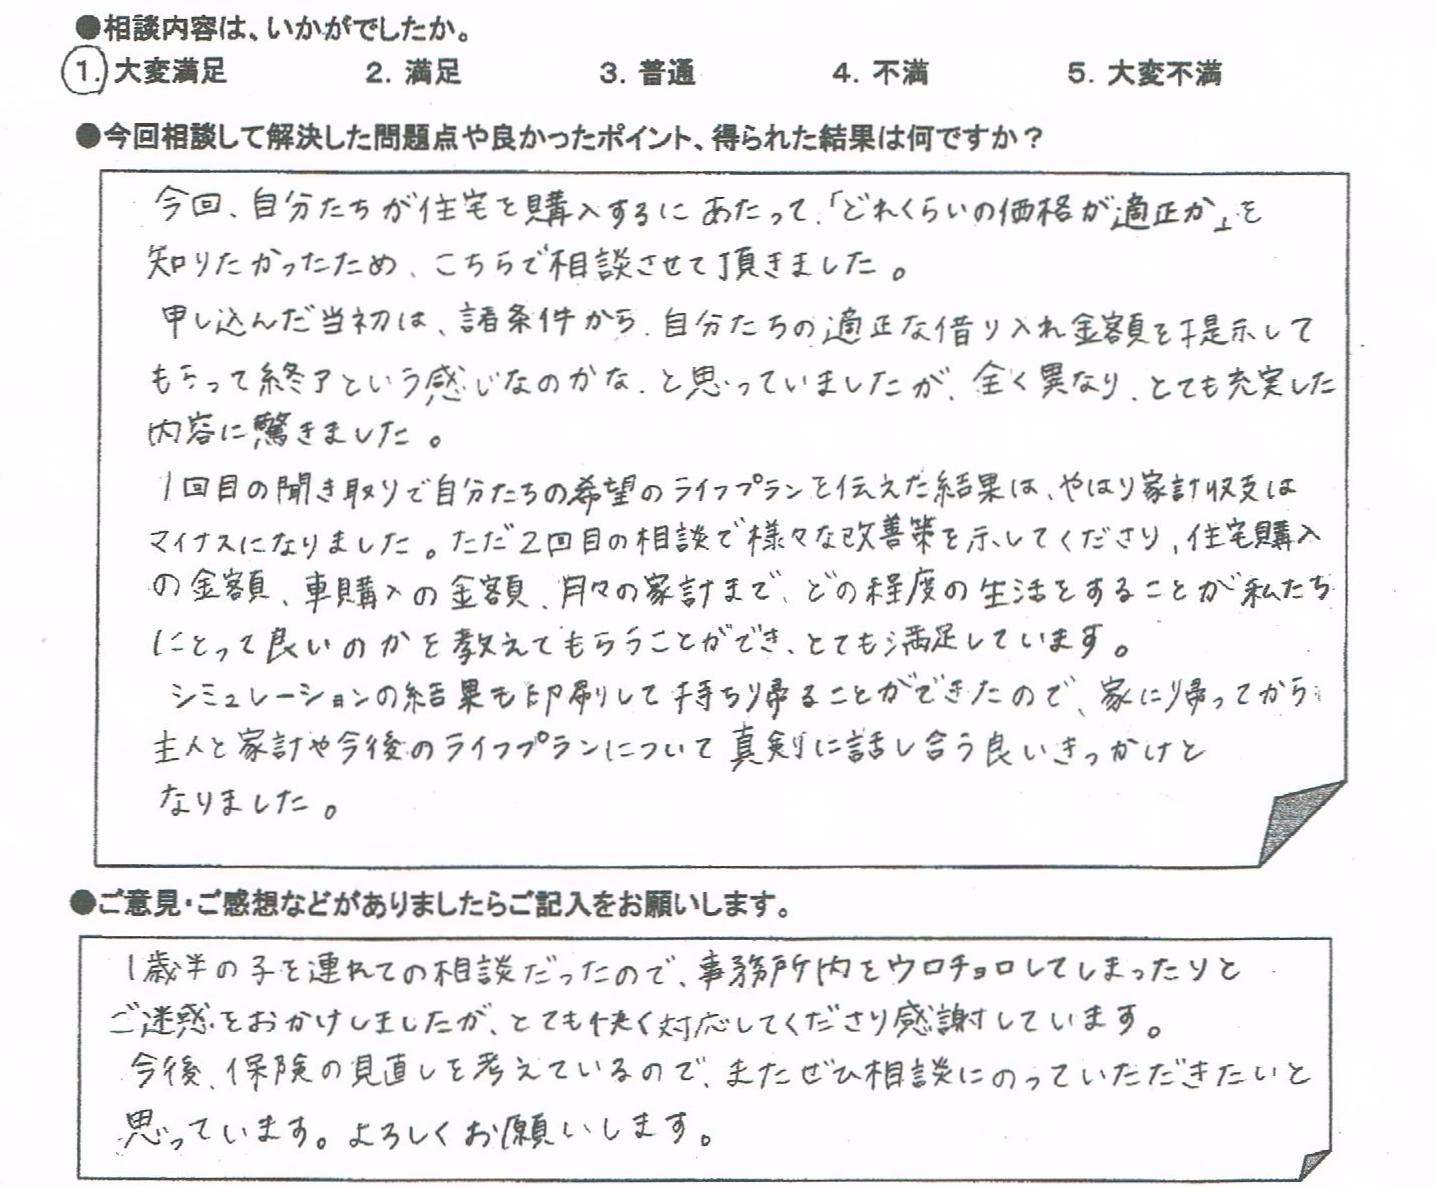 ●相談内容は、いかがでしたか。
1. 大変満足 2. 満足 3. 普通 4. 不満 5. 大変不満
●今回相談して解決した問題点や良かったポイント、得られた結果は何ですか？
今回、自分たちが住宅を購入するにあたって、「どれくらいの価格が適正か」を
知りたかったため、こちらで相談させて頂きました。
申し込んだ当初は、諸条件から、自分たちの適正な借り入れ金額を提示して
もらって終了という感じなのかな、と思っていましたが、全く異なり、とても充実した
内容に驚きました。
1回目の聞き取りで自分たちの希望のライフプランを伝えた結果は、やはり家計収支は
マイナスになりました。ただ2回目の相談で様々な改善策を示してくださり、住宅購入
の金額、車購入の金額、月々の家計まで、どの程度の生活をすることが私たち
にとって良いのかを教えてもらうことができ、とても満足しています。
シミュレーションの結果も印刷して持ち帰ることができたので、家に帰ってから
主人と家計や今後のライフプランについて真剣に話し合う良いきっかけと
なりました。
●ご意見・ご感想などがありましたらご記入をお願いします。
1歳半の子を連れての相談だったので、事務所内をウロチョロしてしまったりと
ご迷惑をおかけしましたが、とても快く対応してくださり感謝しています。
今後、保険の見直しを考えているので、またぜひ相談にのっていただきたいと
思っています。よろしくお願いします。